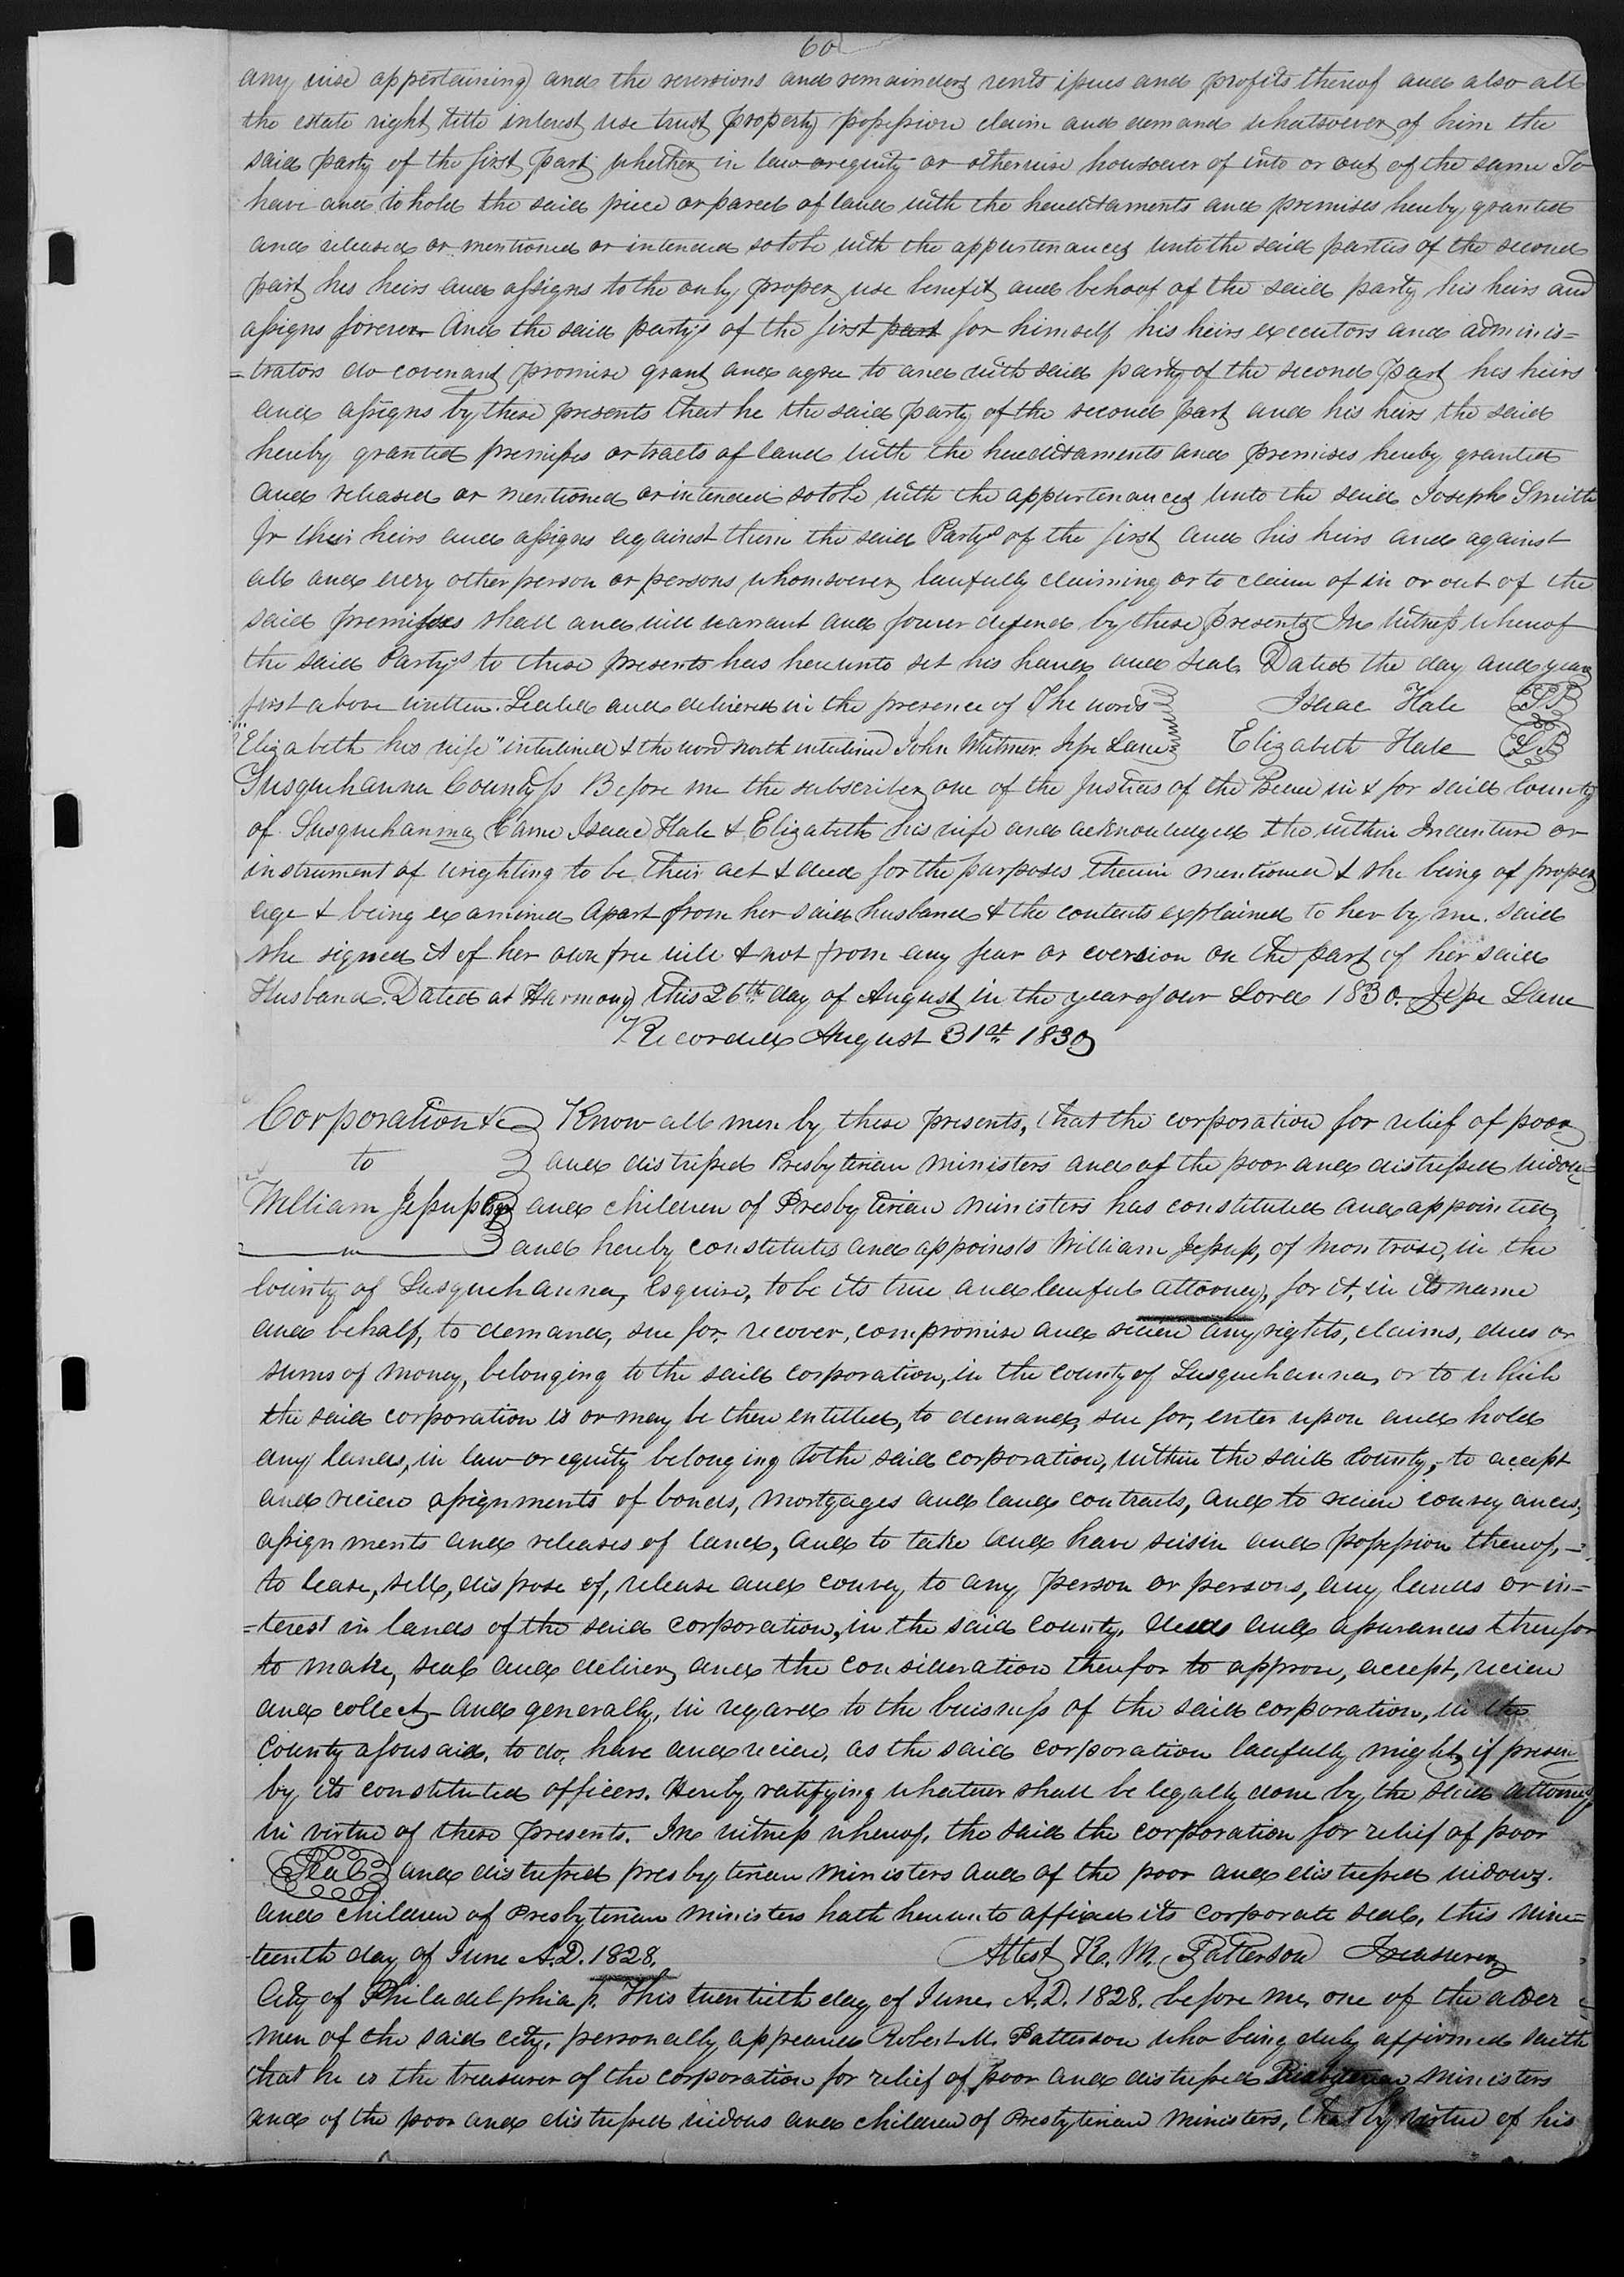 60
any wise appertaining and the reversions and remainders rents issues and profits thereof and also all
the estate right title interest use trust property possession claim and demand whatsoever of him the
said party of the first part whether in law or equity or otherwise howsoever of into or out of the same To
have and to hold the said piece or parcel of land with the hereditaments and premises hereby granted
and released or mentioned or intended so to be with the appurtenances unto the said parties of the second
part his heirs and assigns to the only proper use benefit and behoof of the said party his heirs and
assigns forever And the said partys of the first part for himself his heirs executors and adminis=
=trators do covenant promise grant and agree to and with said party of the second part his heirs
and assigns by these presents that he the said party of the second part and his heirs the said
hereby granted premises or tracts of land with the hereditaments and premises hereby granted
and released or mentioned or intended so to be with the appurtenances unto the said Joseph Smith
Jr their heirs and assigns against them the said Partys of the first and his heirs and against
all and every other person or persons whomsoever lawfully claiming or to claim of in or out of the
said premises shall and will warrant and forever defend by these presents In Witness whereof
the said Partys to these presents has hereunto set his hand and seal Dated the day and year
first above written. Sealed and delivered in the presence of The words Isaac Hale
"Elizabeth his wife" interlined & the word north interlined John Whitmer. Jesse Lane Elizabeth Hale
Susquehanna County ss Before me the subscriber one of the Justices of the Peace in & for said County
of Susquehanna Came Isaac Hale & Elizabeth his wife and acknowledged the within Indenture or
instrument of wrighting to be their act & deed for the purposes therein mentioned & she being of proper
age & being examined Apart from her said husband & the contents explained to her by me. said
she signed it of her own free will & not from any fear or coersion on the part of her said
Husband. Dated at Harmony this 26th day of August in the year of our Lord 1830. Jesse Lane
Recorded August 31st 1830
Corporation &c Know all men by these presents, that the corporation for relief of poor
to and distressed Presbyterian ministers and of the poor and distressed widow=
William Jessup Esqr and children of Presbyterian ministers has constituted and appointed,
and hereby constitutes and appoints William Jessup, of Montrose, in the
County of Susquehanna, Esquire, to be its true and lawful attorney, for it, in its name
and behalf, to demand, sue for, recover, compromise and recieve any rights, claims, dues or
sums of money, belonging to the said corporation, in the county of Susquehanna, or to which
the said corporation is or may be then entitled, to demand, sue for, enter upon and hold
any lands, in law or equity belonging to the said corporation, within the said County, to accept
and recieve assignments of bonds, mortgages and land contracts, and to recieve conveyances,
assignments and releases of land, and to take and have seisin and possession thereof,
to lease, sell, dispose of, release and convey to any person or persons, any lands or in=
=terest in lands of the said corporation, in the said county, deeds and assurances therefor
to make, seal and deliver, and the consideration therefor to approve, accept, recieve
and collect, and generally, in regard to the buisness of the said corporation, in the
County aforesaid, to do, have and recieve, as the said corporation lawfully might, if present
by its constituted officers. Hereby ratifying whatever shall be legally done by the said attorney
in virtue of these presents. In witness whereof, the said the corporation for relief of poor
Seal and distressed presbyterian ministers and of the poor and distressed widows.
and children of Presbyterian ministers hath hereunto affixed its corporate seal, this nine=
teenth day of June A.D. 1828. Attest R. M. Patterson Treasurer
City of Philadelphia ss. This twentieth day of June, A.D. 1828. before me, one of the alder
men of the said city, personally appeared Robert M. Patterson who being duly affirmed saith
that he is the treasurer of the corporation for relief of poor and distressed Presbyterian ministers
and of the poor and distressed widows and children of Presbyterian ministers, that by virtue of his